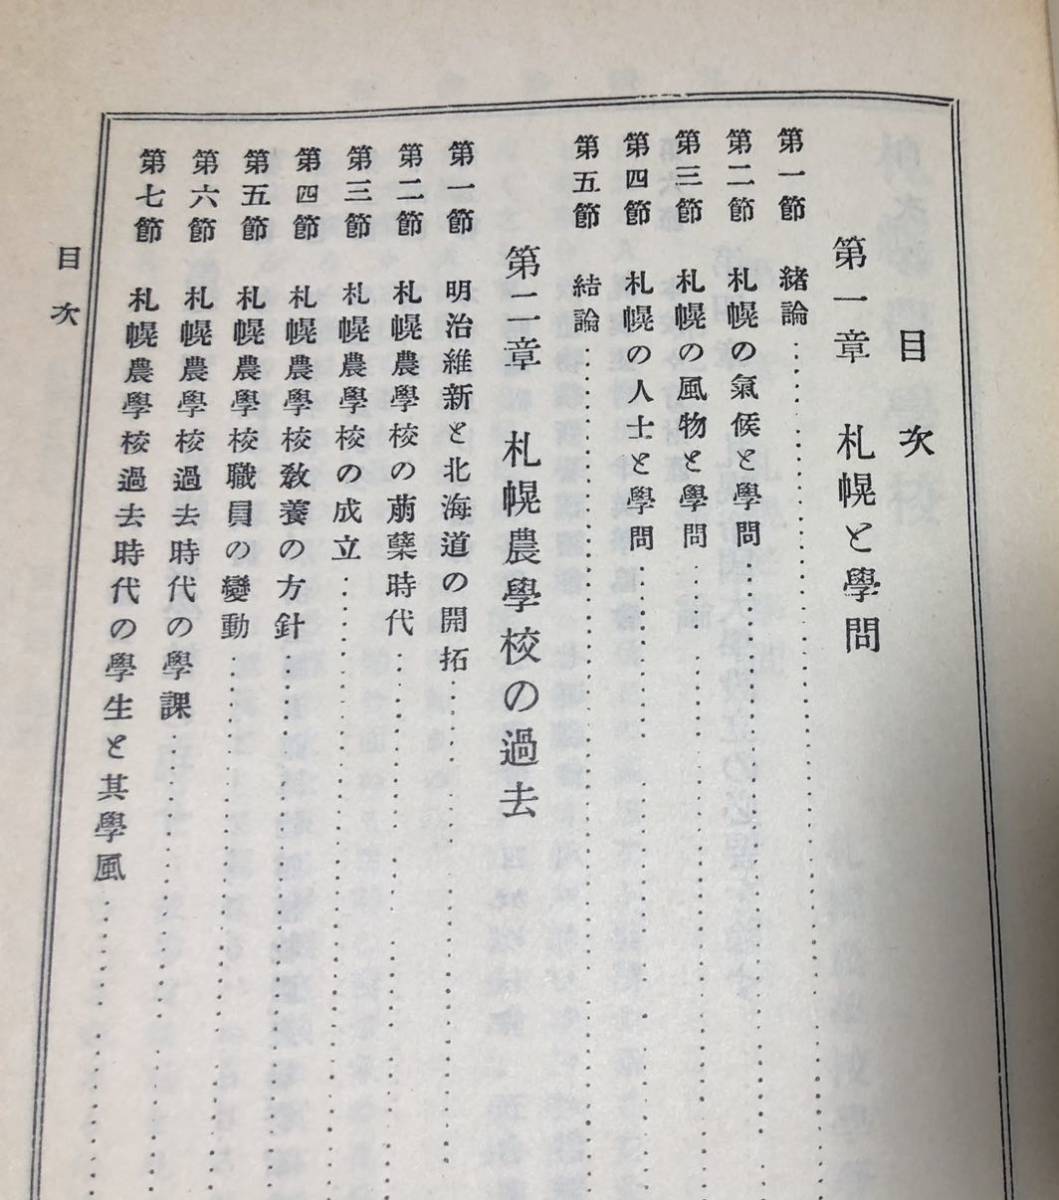 目次
第一章 札幌と學問
第一節 緒論
第二節 札幌の氣候と學問
第三節 札幌の風物と學問
第四節 札幌の人士と學問
第五節 結論
第二章 札幌農學校の過去
第一節 明治維新と北海道の開拓
第二節 札幌農學校の萠蘖時代
第三節 札幌農學校の成立
第四節 札幌農學校敎養の方針
第五節 札幌農學校職員の變動
第六節 札幌農學校過去時代の學課
第七節 札幌農學校過去時代の學生と其學風
目次